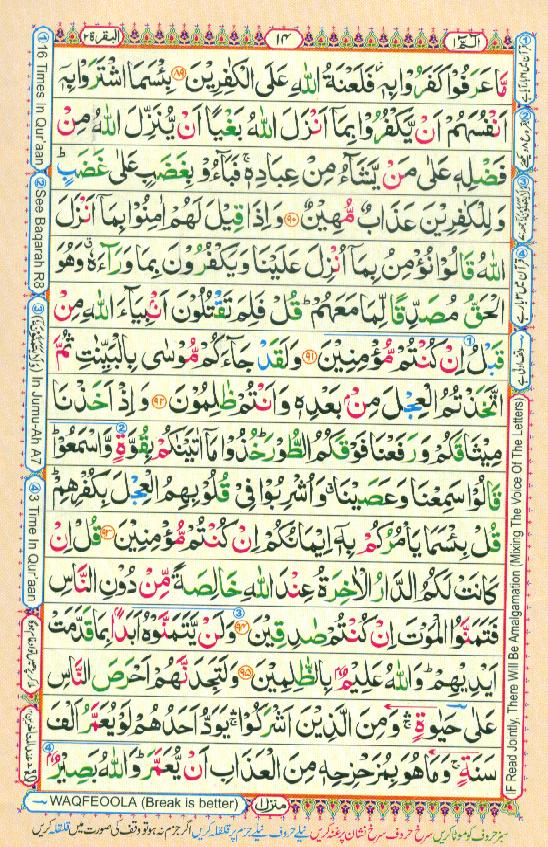 البقرة ٢
١٤
الٓمّٓ ١
مَّا عَرَفُوْا كَفَرُوْا بِهٖ٘ فَلَعْنَةُ اللّٰهِ عَلَی الْكٰفِرِیْنَ ۟۸۹ بِئْسَمَا اشْتَرَوْا بِهٖۤ
اَنْفُسَهُمْ اَنْ یَّكْفُرُوْا بِمَاۤ اَنْزَلَ اللّٰهُ بَغْیًا اَنْ یُّنَزِّلَ اللّٰهُ مِنْ
فَضْلِهٖ عَلٰی مَنْ یَّشَآءُ مِنْ عِبَادِهٖ ۚ فَبَآءُوْ بِغَضَبٍ عَلٰی غَضَبٍ ؕ
وَلِلْكٰفِرِیْنَ عَذَابٌ مُّهِیْنٌ ۟۹۰ وَاِذَا قِیْلَ لَهُمْ اٰمِنُوْا بِمَاۤ اَنْزَلَ
اللّٰهُ قَالُوْا نُؤْمِنُ بِمَاۤ اُنْزِلَ عَلَیْنَا وَیَكْفُرُوْنَ بِمَا وَرَآءَهٗ ۗ وَهُوَ
الْحَقُّ مُصَدِّقًا لِّمَا مَعَهُمْ ؕ قُلْ فَلِمَ تَقْتُلُوْنَ اَنْۢبِیَآءَ اللّٰهِ مِنْ
قَبْلُ اِنْ كُنْتُمْ مُّؤْمِنِیْنَ ۟۹۱ وَلَقَدْ جَآءَكُمْ مُّوْسٰی بِالْبَیِّنٰتِ ثُمَّ
اتَّخَذْتُمُ الْعِجْلَ مِنْۢ بَعْدِهٖ وَاَنْتُمْ ظٰلِمُوْنَ ۟۹۲ وَاِذْ اَخَذْنَا
مِیْثَاقَكُمْ وَرَفَعْنَا فَوْقَكُمُ الطُّوْرَ ؕ خُذُوْا مَاۤ اٰتَیْنٰكُمْ بِقُوَّةٍ وَّاسْمَعُوْا ؕ
قَالُوْا سَمِعْنَا وَعَصَیْنَا ۗ وَاُشْرِبُوْا فِیْ قُلُوْبِهِمُ الْعِجْلَ بِكُفْرِهِمْ ؕ
قُلْ بِئْسَمَا یَاْمُرُكُمْ بِهٖۤ اِیْمَانُكُمْ اِنْ كُنْتُمْ مُّؤْمِنِیْنَ ۟۹۳ قُلْ اِنْ
كَانَتْ لَكُمُ الدَّارُ الْاٰخِرَةُ عِنْدَ اللّٰهِ خَالِصَةً مِّنْ دُوْنِ النَّاسِ
فَتَمَنَّوُا الْمَوْتَ اِنْ كُنْتُمْ صٰدِقِیْنَ ۟۹۴ وَلَنْ یَّتَمَنَّوْهُ اَبَدًۢا بِمَا قَدَّمَتْ
اَیْدِیْهِمْ ؕ وَاللّٰهُ عَلِیْمٌۢ بِالظّٰلِمِیْنَ ۟۹۵ وَلَتَجِدَنَّهُمْ اَحْرَصَ النَّاسِ
عَلٰی حَیٰوةٍ ۛۚ وَمِنَ الَّذِیْنَ اَشْرَكُوْا ۛۚ یَوَدُّ اَحَدُهُمْ لَوْ یُعَمَّرُ اَلْفَ
سَنَةٍ ۚ وَمَا هُوَ بِمُزَحْزِحِهٖ مِنَ الْعَذَابِ اَنْ یُّعَمَّرَ ؕ وَاللّٰهُ بَصِیْرٌۢ
① 16 Times In Qur'aan
② See Baqarah R8
③ (وَلَا یَتَمَنَّوْنَهٗ) In Jumu-Ah A7
④ 3 Time In Qur'aan
IF Read Jointly, There Will Be Amalgamation (Mixing The Voice Of The Letters)
WAQFEOOLA (Break is better)
منزل ١
سبز حروف کو موٹا کریں سرخ حروف سرخ نشان پر غنہ کریں نیلے حروف نیلے جزم پر قلقلہ کریں اگر جزم نہ ہو تو وقف کی صورت میں قلقلہ کریں